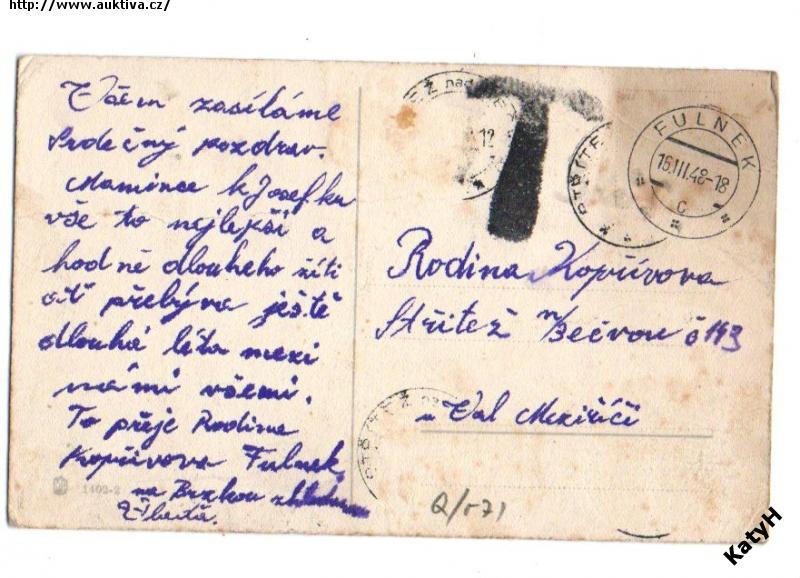 http://www.auktiva.cz/
Všem zasíláme
Srdečný pozdrav.
Mamince k Josefku
vše to nejlepší a
hodně dlouheho žití
ať přebýva ještě
dlouhá léta mezi
námi všemi.
To přeje Rodina
Kopřivova Fulnek
na Brzkou
1402-2
FULNEK
16.III.48-18
C
T
12
Rodina Kopřivova
Střítež n/Bečvou č 143
u Val Meziříčí
Q/171
KatyH